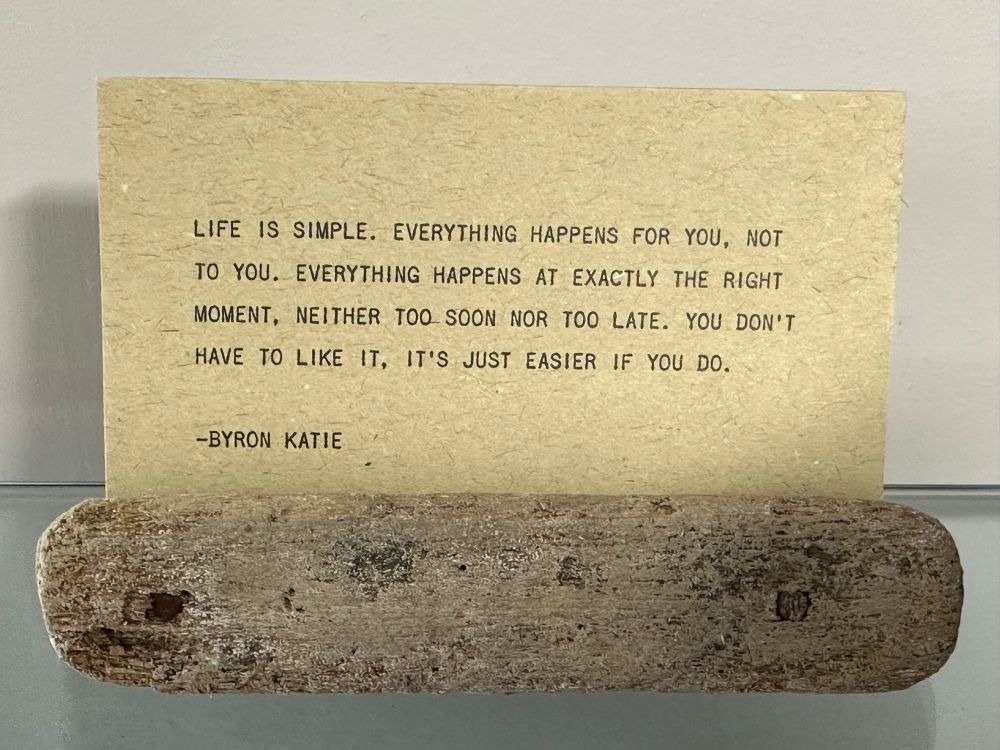 LIFE IS SIMPLE. EVERYTHING HAPPENS FOR YOU, NOT
TO YOU. EVERYTHING HAPPENS AT EXACTLY THE RIGHT
MOMENT, NEITHER TOO SOON NOR TOO LATE. YOU DON'T
HAVE TO LIKE IT, IT'S JUST EASIER IF YOU DO.
-BYRON KATIE